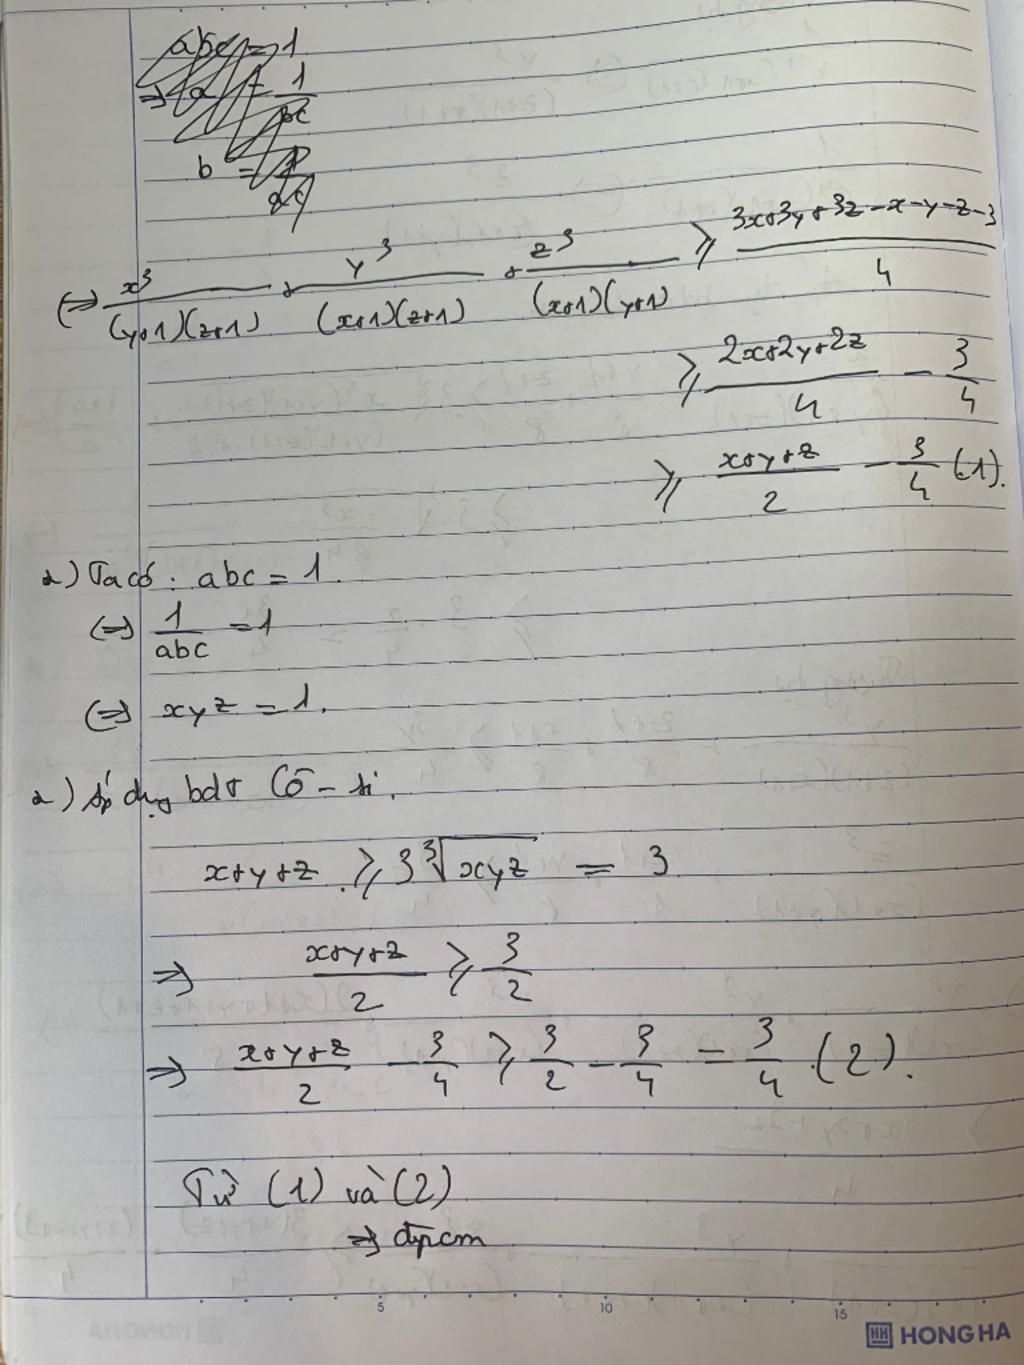 abc = 1
⇒ a = 1/bc
b = 1/ac
(⇒) x³/((y+1)(z+1)) + y³/((x+1)(z+1)) + z³/((x+1)(y+1)) ⩾ (3x+3y+3z-x-y-z-3)/4
⩾ (2x+2y+2z)/4 - 3/4
⩾ (x+y+z)/2 - 3/4 (1).
+) Ta có: abc = 1.
(⇒) 1/abc = 1
(⇒) xyz = 1.
+) Áp dụng bđt Cô-si.
x+y+z ⩾ 3∛(xyz) = 3
⇒ (x+y+z)/2 ⩾ 3/2
⇒ (x+y+z)/2 - 3/4 ⩾ 3/2 - 3/4 = 3/4 (2).
Từ (1) và (2)
⇒ đpcm
5 10 15
HH HONG HA